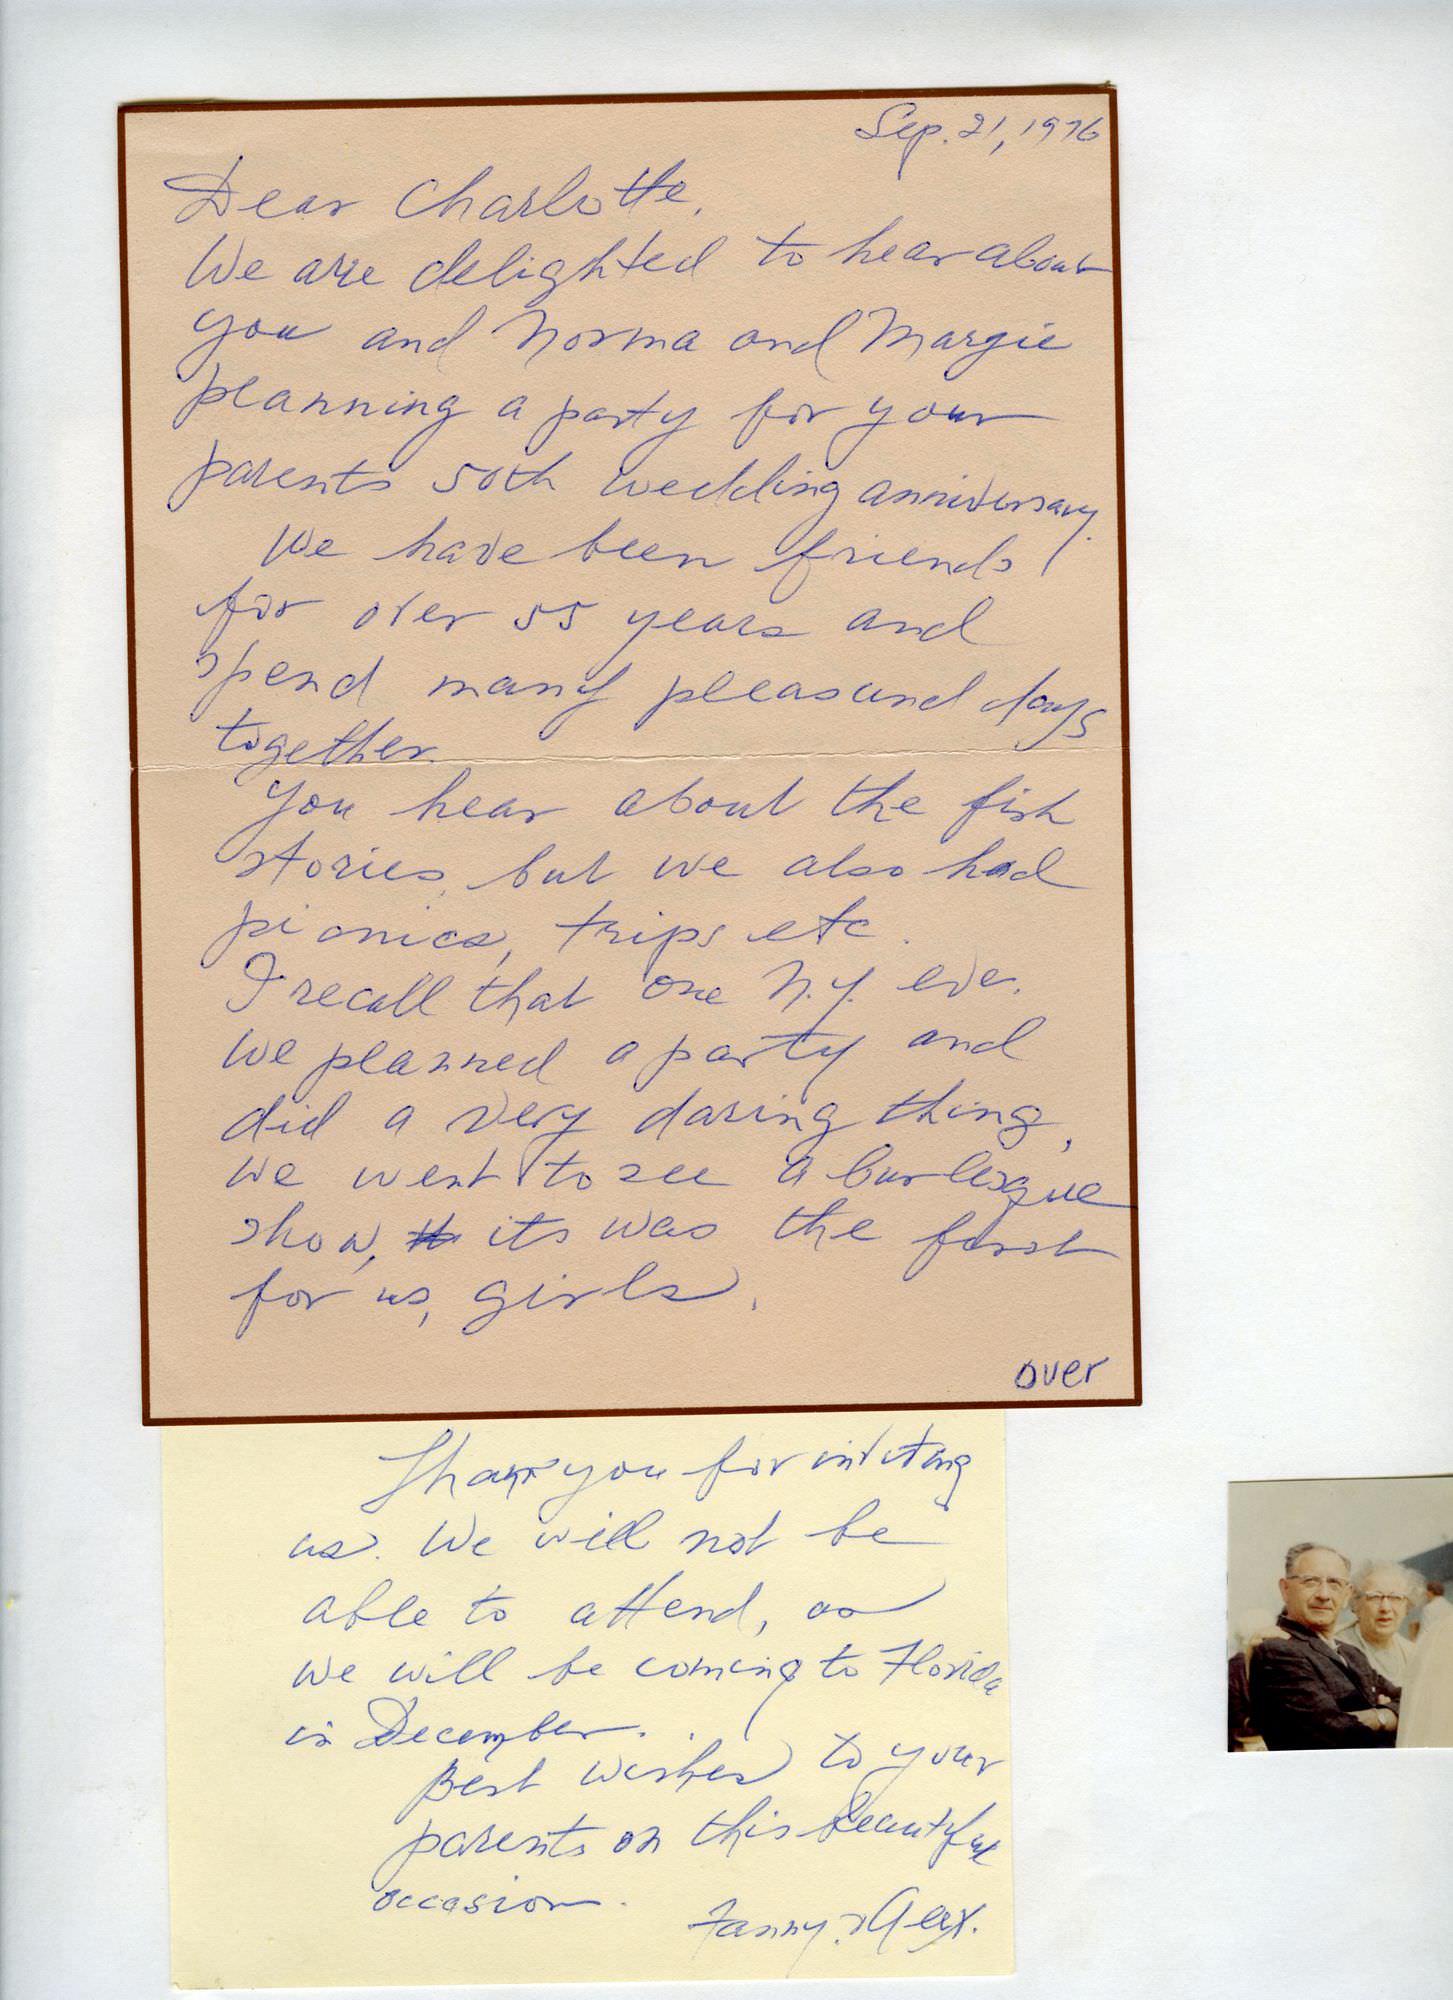 Sep. 21, 1976
Dear Charlotte,
We are delighted to hear about
you and Norma and Margie
planning a party for your
parents 50th wedding anniversary.
We have been friends
for over 55 years and
spend many pleasand days
together.
You hear about the fish
stories, but we also had
picnics, trips etc.
I recall that one N.Y. eve.
we planned a party and
did a very daring thing,
we went to see a burlesque
show, its was the first
for us, girls.
over
Thank you for inviting
us. We will not be
able to attend, as
we will be coming to Florida
in December.
Best wishes to your
parents on this beautiful
occasion.
Fanny & Alex.